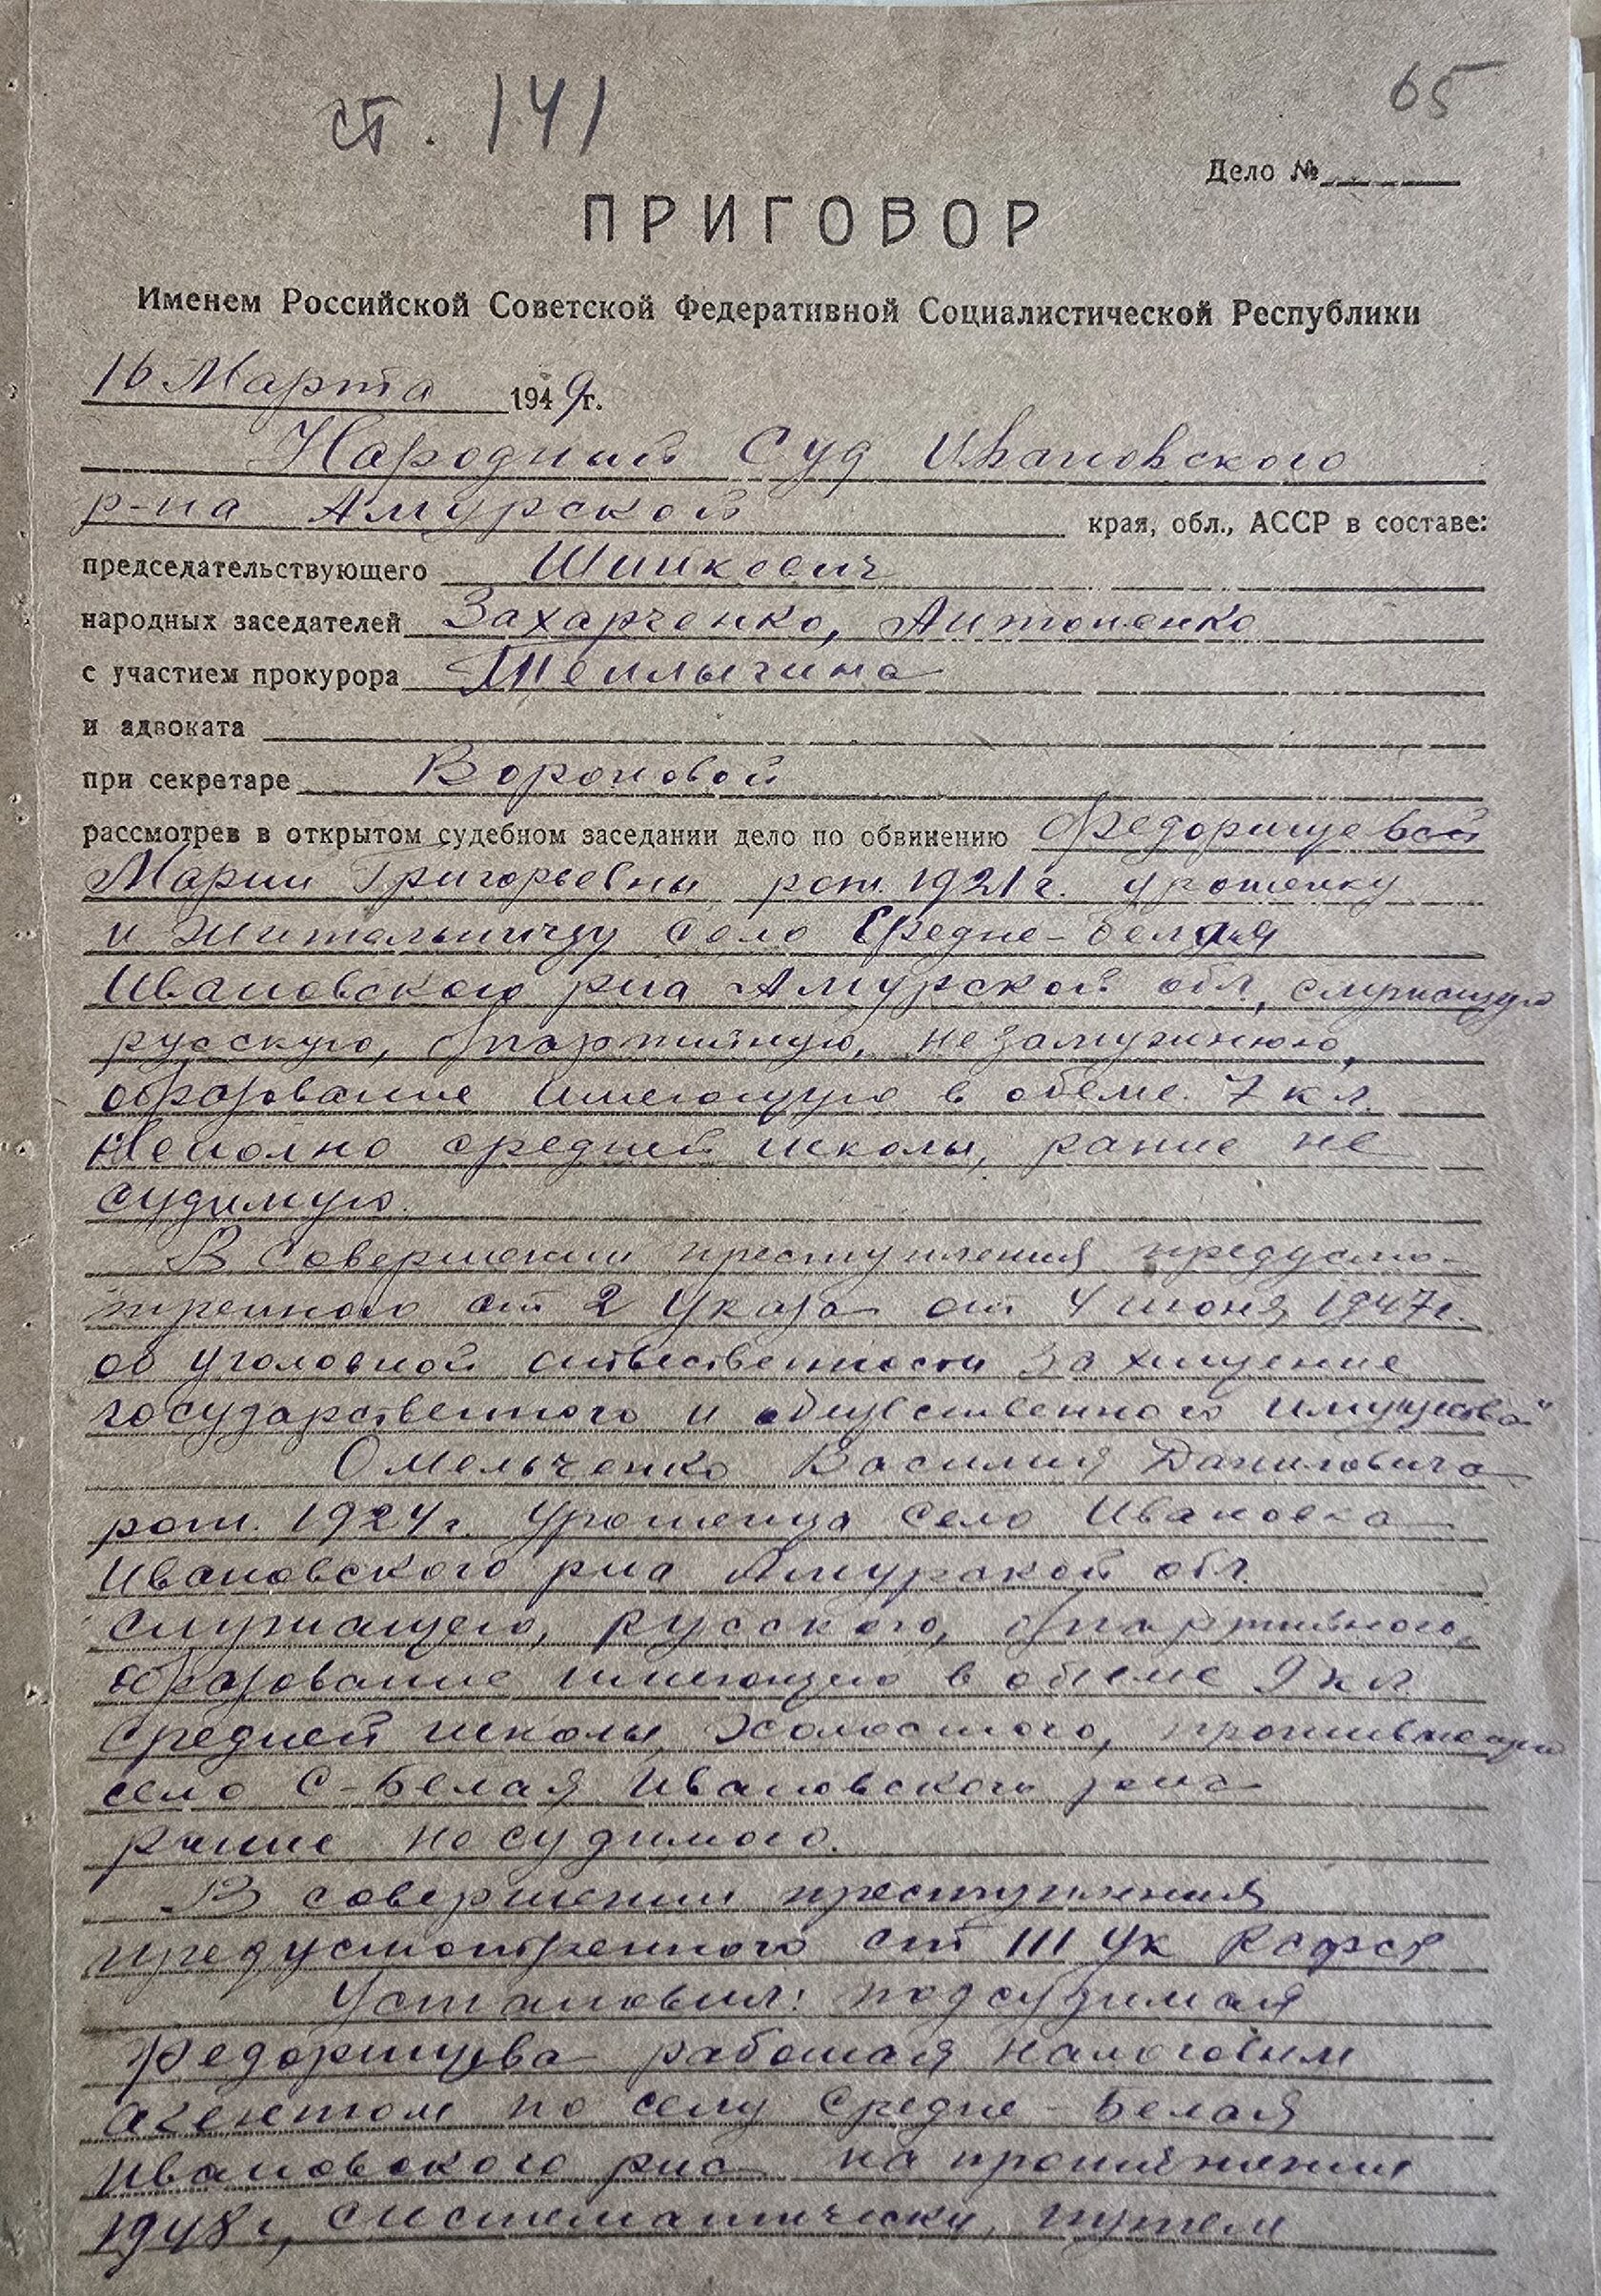 ст. 141
65
Дело №
ПРИГОВОР
Именем Российской Советской Федеративной Социалистической Республики
16 Марта 1949г.
Народный Суд Ивановского
р-на Амурской края, обл., АССР в составе:
председательствующего Шинкевич
народных заседателей Захарченко, Антоненко
с участием прокурора
и адвоката
при секретаре Вороновой
рассмотрев в открытом судебном заседании дело по обвинению Федорищевой
Марии Григорьевны рож. 1921 г. уроженку
и жительницу село Средне-Белая
Ивановского рна Амурской обл, служащую
русскую, б/партийную, незамужнюю,
образование имеющую в обеме 7 кл.
Неполно средней школы, ранне не
судимую.
В совершении преступления предусмо-
тренного ст 2 Указа от 4 июня 1947г.
об уголовной ответственности за хищение
государственного и общественного имущества"
Омельченко Василия Даниловича
рож. 1924 г. уроженца село Ивановка
Ивановского рна Амурской обл.
служащего, русского, б/партийного,
образование имеющего в обеме 9 кл
средней школы, холостого, проживающего
село С-Белая Ивановского рна
ранне не судимого.
В совершении преступления
предусмотренного ст 111 Ук РСФСР
Установил: подсудимая
Федорищева работая налоговым
агентом по селу Средне-Белая
Ивановского рна на протяжении
1948 г, систематически, путем